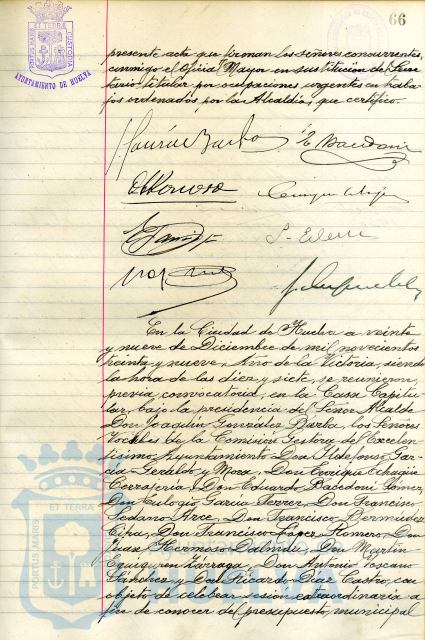 66
PORTUS MARIS ET TERRÆ CUSTODIA
AYUNTAMIENTO DE HUELVA
presente acta que firman los señores concurrentes,
conmigo el Oficial Mayor en sustitución del Secre
tario titular por ocupaciones urgentes en traba
jos ordenados por la Alcaldía, que certifico.
En la Ciudad de Huelva a veinte
y nueve de Diciembre de mil novecientos
treinta y nueve, Año de la Victoria, siendo
la hora de las diez y siete, se reunieron,
previa convocatoria, en la Casa Capitu-
lar, bajo la presidencia del Señor Alcalde
Don Joaquín González Barba, los Señores
Vocales de la Comisión Gestora del Excelen-
tísimo Ayuntamiento Don Ildefonso Gar-
cía Geraldo y Mora, Don Enrique Echagüe
Cerrajería, Don Eduardo Bacedoni
Don Eulogio García Ferrer, Don Francisco
Sedano Arce, Don Francisco Bermúdez
Don Francisco López Romero, Don
Juan Hermoso Dalmau, Don Martín
Eguiguren Larraga, Don Antonio Toscano
Sánchez y Don Ricardo Díaz Castro, con
objeto de celebrar sesión extraordinaria a
fin de conocer del presupuesto municipal
PORTUS MARIS ET TERRA